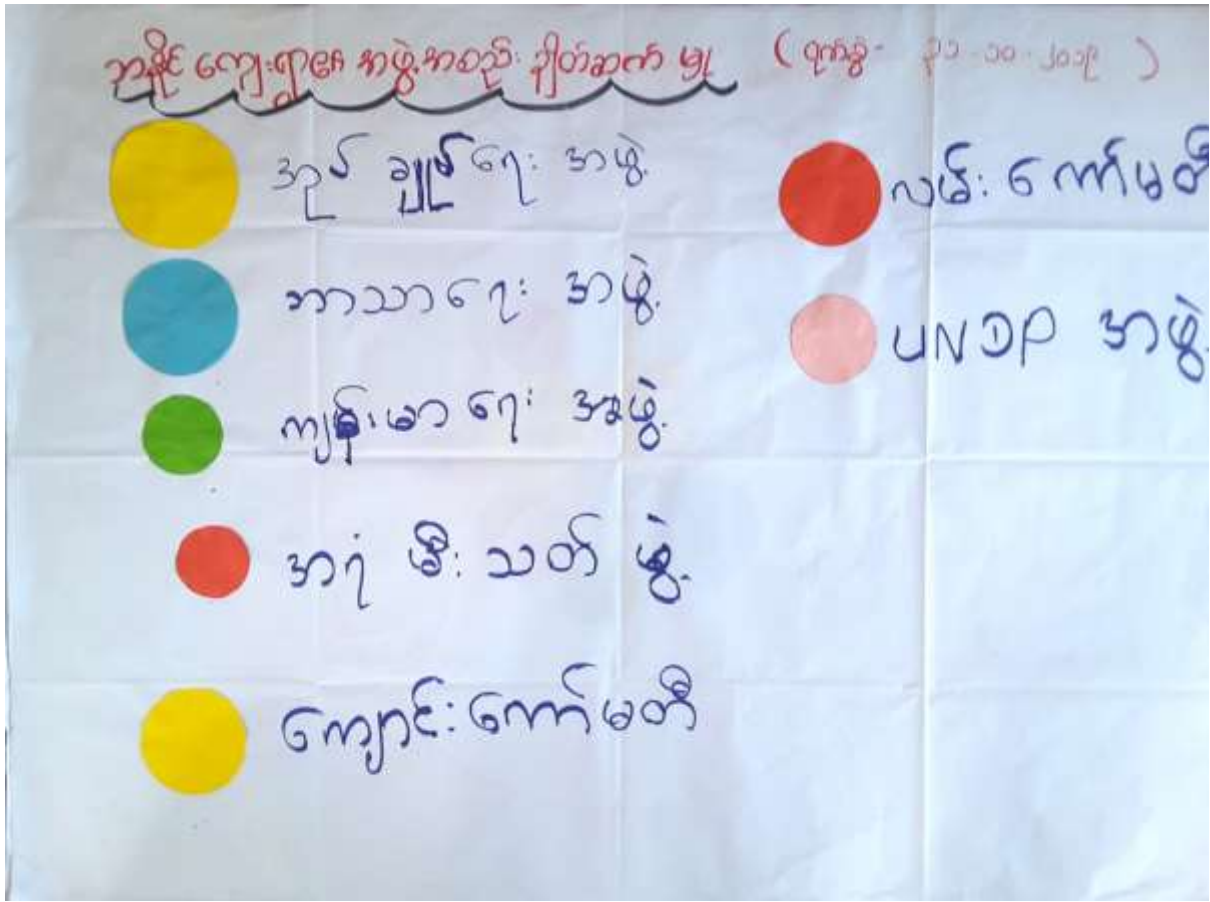 ဘုနိုင် ကျေးရွာ၏ အဖွဲ့အစည်း ချိတ်ဆက် မှု (ရက်စွဲ - ၃၁-၁၀-၂၀၁၉ )
အုပ် ချုပ်ရေး အဖွဲ့
ဘာသာရေး အဖွဲ့
ကျန်းမာရေး အဖွဲ့
အရံ မီးသတ် ဖွဲ့
ကျောင်းကော်မတီ
လမ်းကော်မတီ
UNDP အဖွဲ့